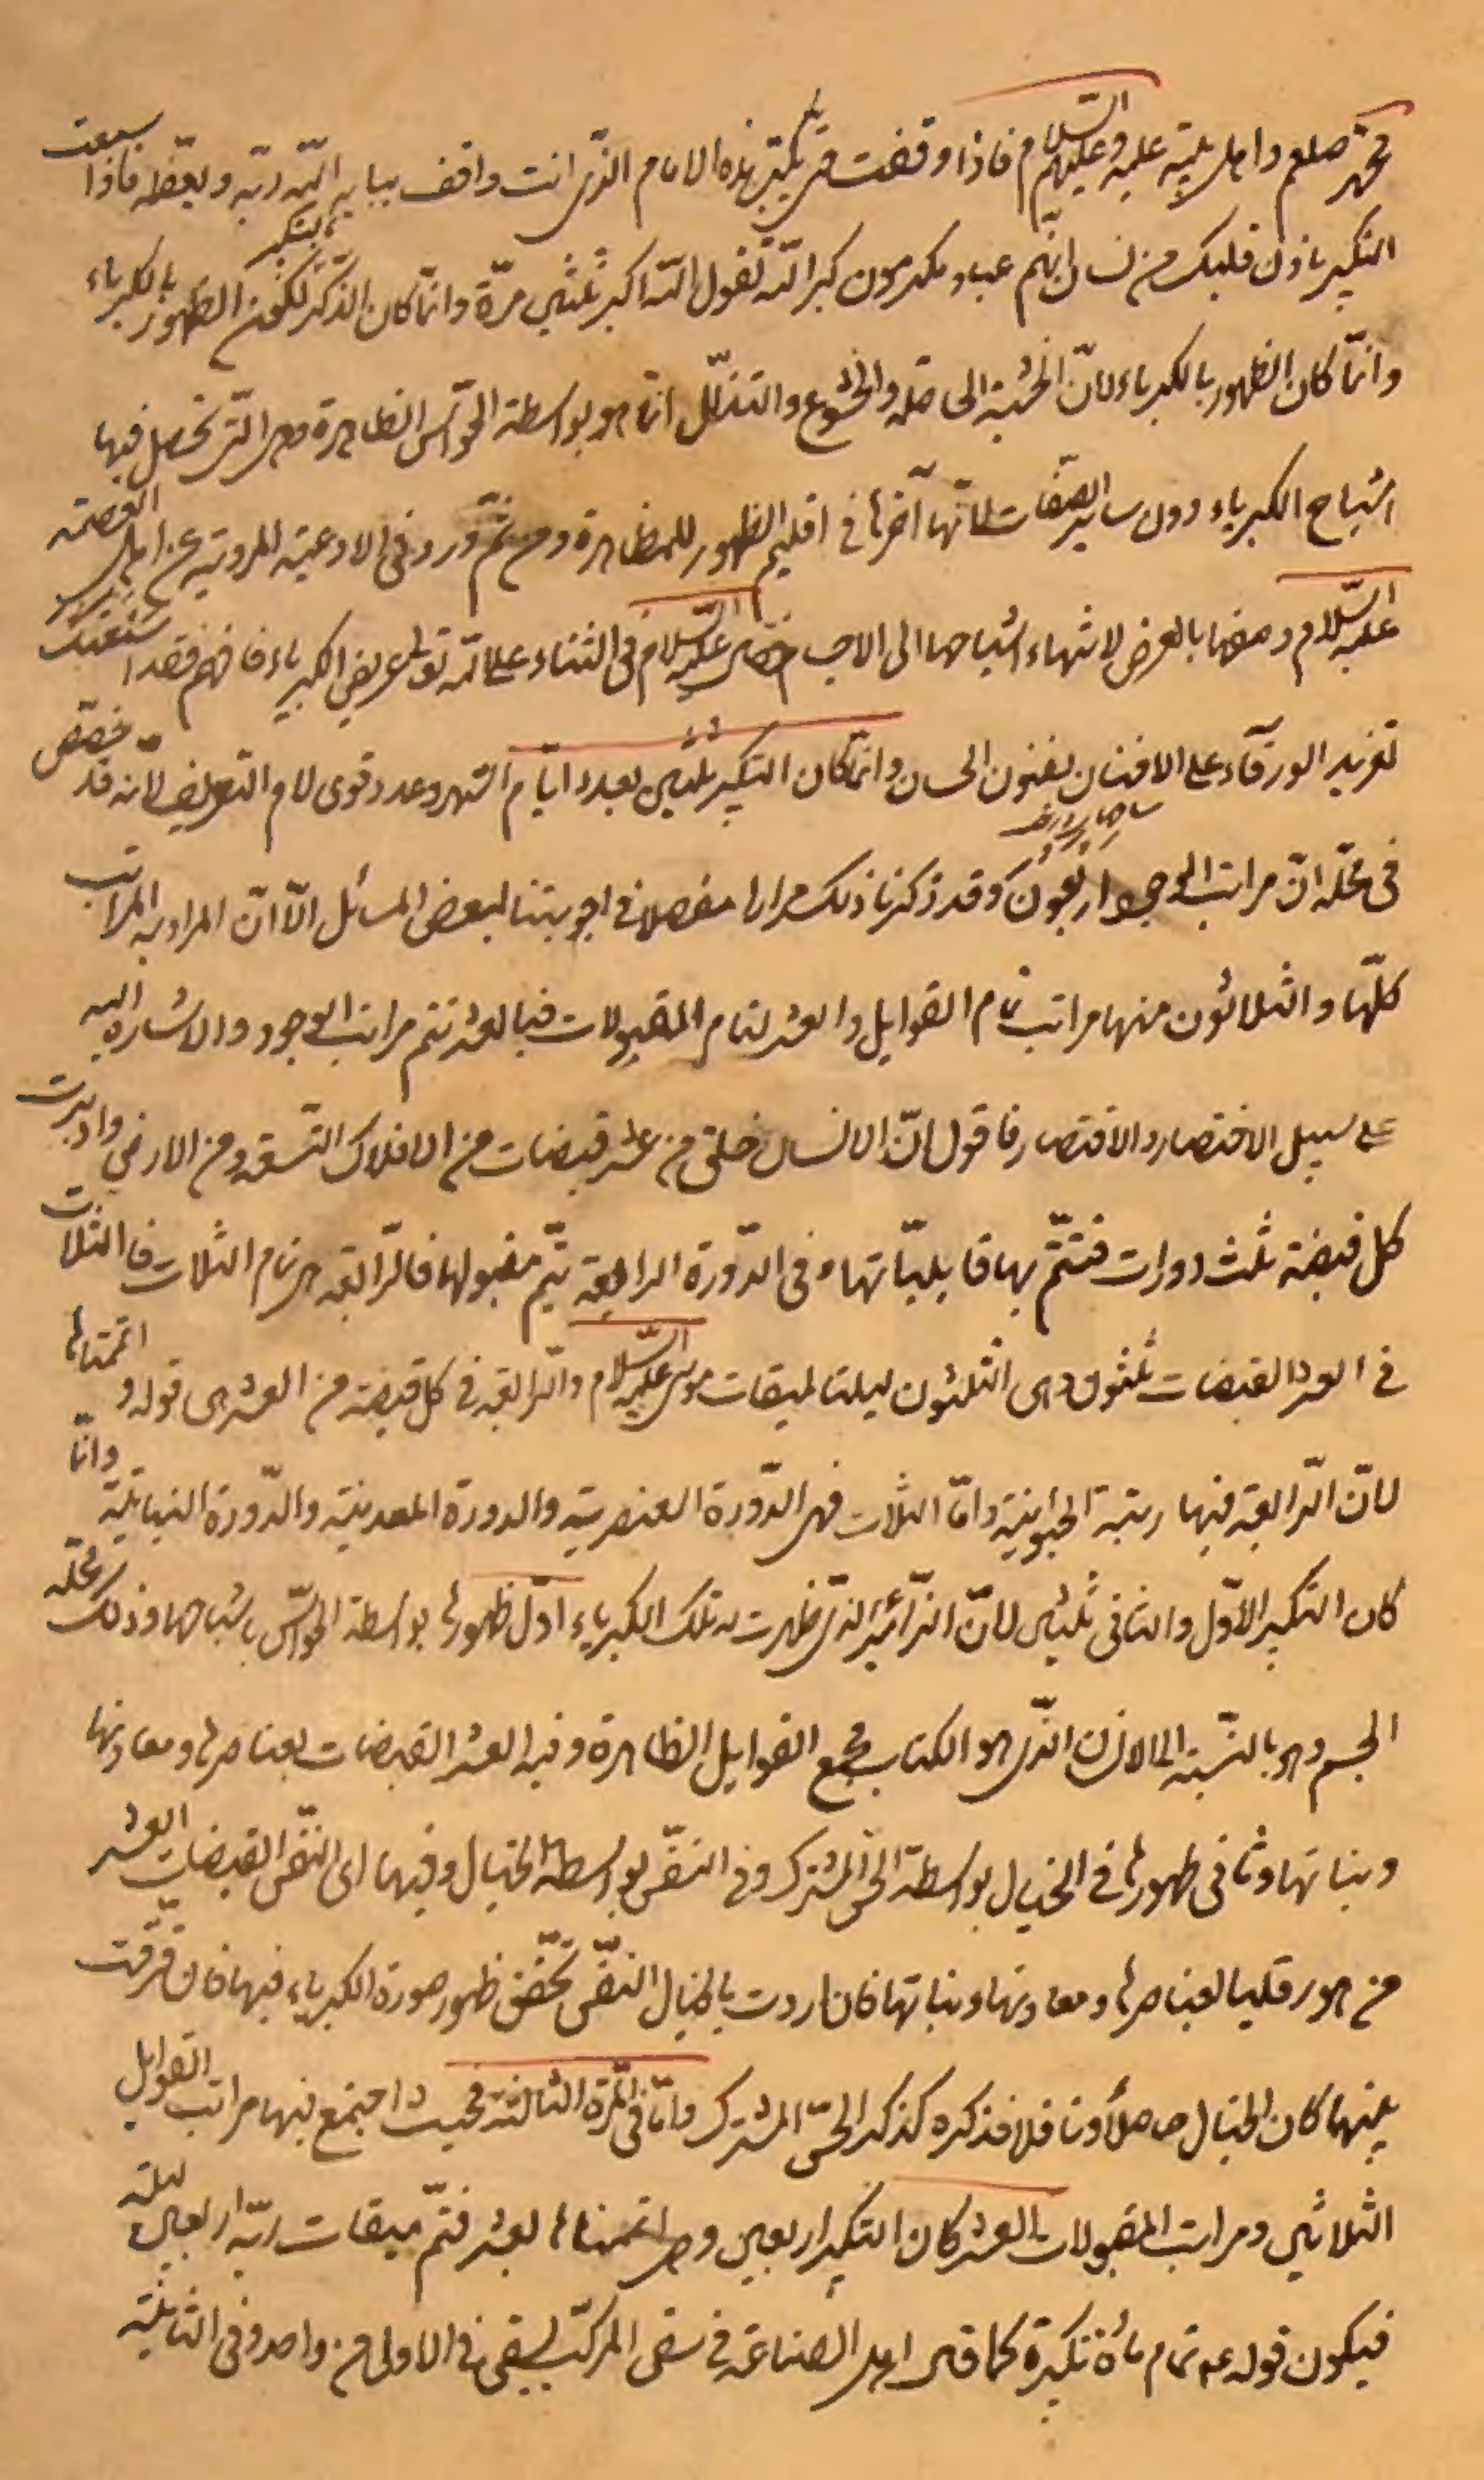 محمّد صلعم و اهل بيته عليه و عليهم السّلام فاذا وقفت هى يكبّر هذه الامام الذى انت واقف ببابه اللّه ربّه و يعظّمه فاذا سمعت
التكبير باذن قلبك من لسان انّهم عباد مكرمون كبر اللّه تقول اللّه اكبر ثلثين مرّة و انّما كان الذّكر بالتكبير لكون الظهور بالكبرياء
و انّما كان الظهور بالكبرياء لانّ الخشية الحاصلة و الخشوع و التذلّل انّما هو بواسطة الحواسّ الظاهرة و هى الّتى تحصل فيها
اشباح الكبرياء دون ساير الصّفات لانّها آخرها فى اقليم الظهور للمظاهرة و من ثمّ ورد فى الادعية المروية عن اهل العصمة
عليهم السّلام وصفها بالعرض لانتهاء اشباحها الى الاجسام قال عليه السّلام فى الثناء على اللّه تعالى عريض الكبرياء فافهم فقد اسمعتك
تغريد الورقآء على الافنان بفنون الحسان و انّما كان التكبير ثلثين بعدد ايّام الشهر و عدد قوى لام التعريف لانه قد خصّص
فى محلّه انّ مراتب الوجود اربعون و قد ذكرنا ذلك مرارا مفصلا فى اجوبتنا لبعض المسائل الّا انّ المراد به المراتب
كلّها و الثلاثون منها مراتب تمام القوابل و العشر لتمام المقبولات فبالعشر تتم مراتب الوجود و الاشارة اليه
على سبيل الاختصار و الاقتصار فاقول انّ الانسان خلق من عشر قبضات من الافلاك التسعة و من الارض و اديرت
كل قبضة ثلث دورات فتتمّ بها قابليّاتها و فى الدّورة الرابعة تتمّ مقبولها فالرّابعة هى تمام الثلاث فالثلاث
فى العشر القبضات ثلثون و هى الثلثون ليلة لميقات موسى عليه السّلام و الرّابعة فى كل قبضة من العشر هى قوله و اتممناها
لانّ الرّابعة فيها رتبة الحيوانية و امّا الثلاث فهى الدّورة العنصرية و الدورة المعدنية و الدّورة النباتية و انّما
كان التكبير الاوّل و الثانى ثلثين لانّ الزّائر الذى ظهرت له تلك الكبرياء اوّل ظهورها بواسطة الحواسّ باشباحها و ذلك محلّه
الجسم و هو بالنّسبة الى الانسان الذّى هو الكتاب مجمع القوابل الظاهرة و فيه العشر القبضات بعناصرها و معادنها
و نباتها و ثانى ظهورها فى الخيال بواسطة الحسّ المشترك و فى النّفس بواسطة الخيال و فيها اى النّفس القبضات العشر
من هورقليا بعناصرها و معادنها و نباتها فان اردت بالخيال النّفس تحقّق ظهور صورة الكبرياء فيها فان فرّقت
بينهما كان الخيال حاصلًا و ناقلا فذكره كذكر الحسّ المشترك و امّا فى المرّة الثالثة فحيث اجتمع فيها مراتب القوابل
الثلاثين و مراتب المقبولات العشر كان التكبير اربعين و هى اتممناها بعشر فتمّ ميقات ربّه اربعين ليلة
فيكون قوله عم تمام مأة تكبيرة كما قال اهل الصناعة فى سقى المركّب يسقى فى الاولى من واحد و فى الثانية